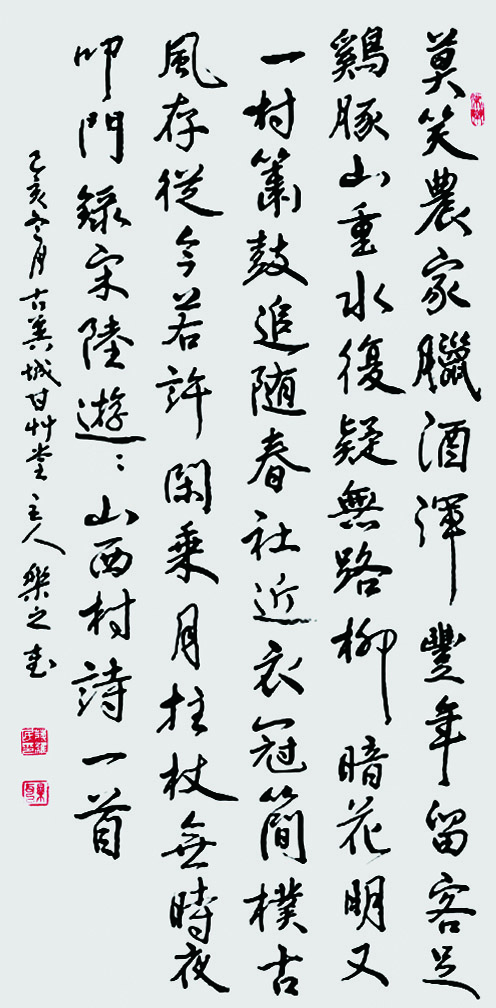 莫笑農家臘酒渾豐年留客足
鷄豚山重水復疑無路柳暗花明又
一村簫鼓追随春社近衣冠簡樸古
風存從今若許閑乘月拄杖無時夜
叩門錄宋陸遊〻山西村詩一首
己亥月古冀城甘艸堂主人樂之書